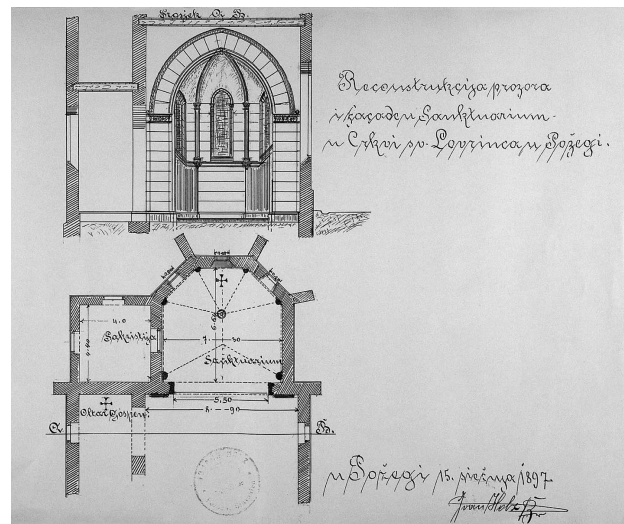 Presjek A B.
Reconstrukcija prozora
i façade u Sanktuarium
u Crkvi sv. Lovrinca u Požegi.
4.0
Sakristija
7. 30
6.60
Sanktuarium
5.50
8. 90
Oltar Gospen.
A.
B.
u Požegi 15. siečnja 1897
Ivan